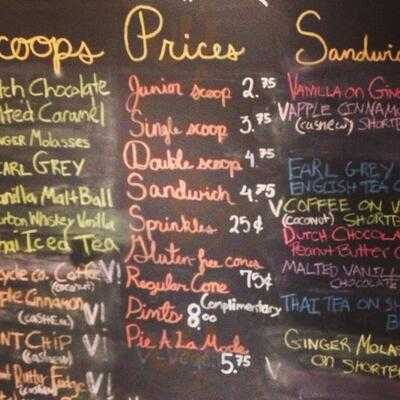 coops
tch Chocolate
lted Caramel
NGER Molasses
EARL GREY
anilla Malt Ball
urbon Whiskey Vanilla
hai Iced Tea
cycle co. Coffee V!
(coconut)
ple Cinnamon
(CASHEW) V!
NT CHIP
(cashew) V!
Butter Fudge
V!
Prices
Junior scoop 2.75
Single scoop 3.75
Double scoop 4.75
Sandwich 4.75
Sprinkles 25¢
Gluten free cones
Regular Cone 75¢
Complimentary
Pints 8.00
Pie A La Mode
5.75
Sandwic
VANILLA on GING
VAPPLE CINNAMO
(cashew) SHORTB
EARL GREY
ENGLISH TEA C
V COFFEE ON V
(coconut) SHORTBR
DUTCH CHOCOLA
Peanut Butter C
MALTED VANILL
CHOCOLATE
THAI TEA ON SH
B
GINGER MOLAS
ON SHORTB